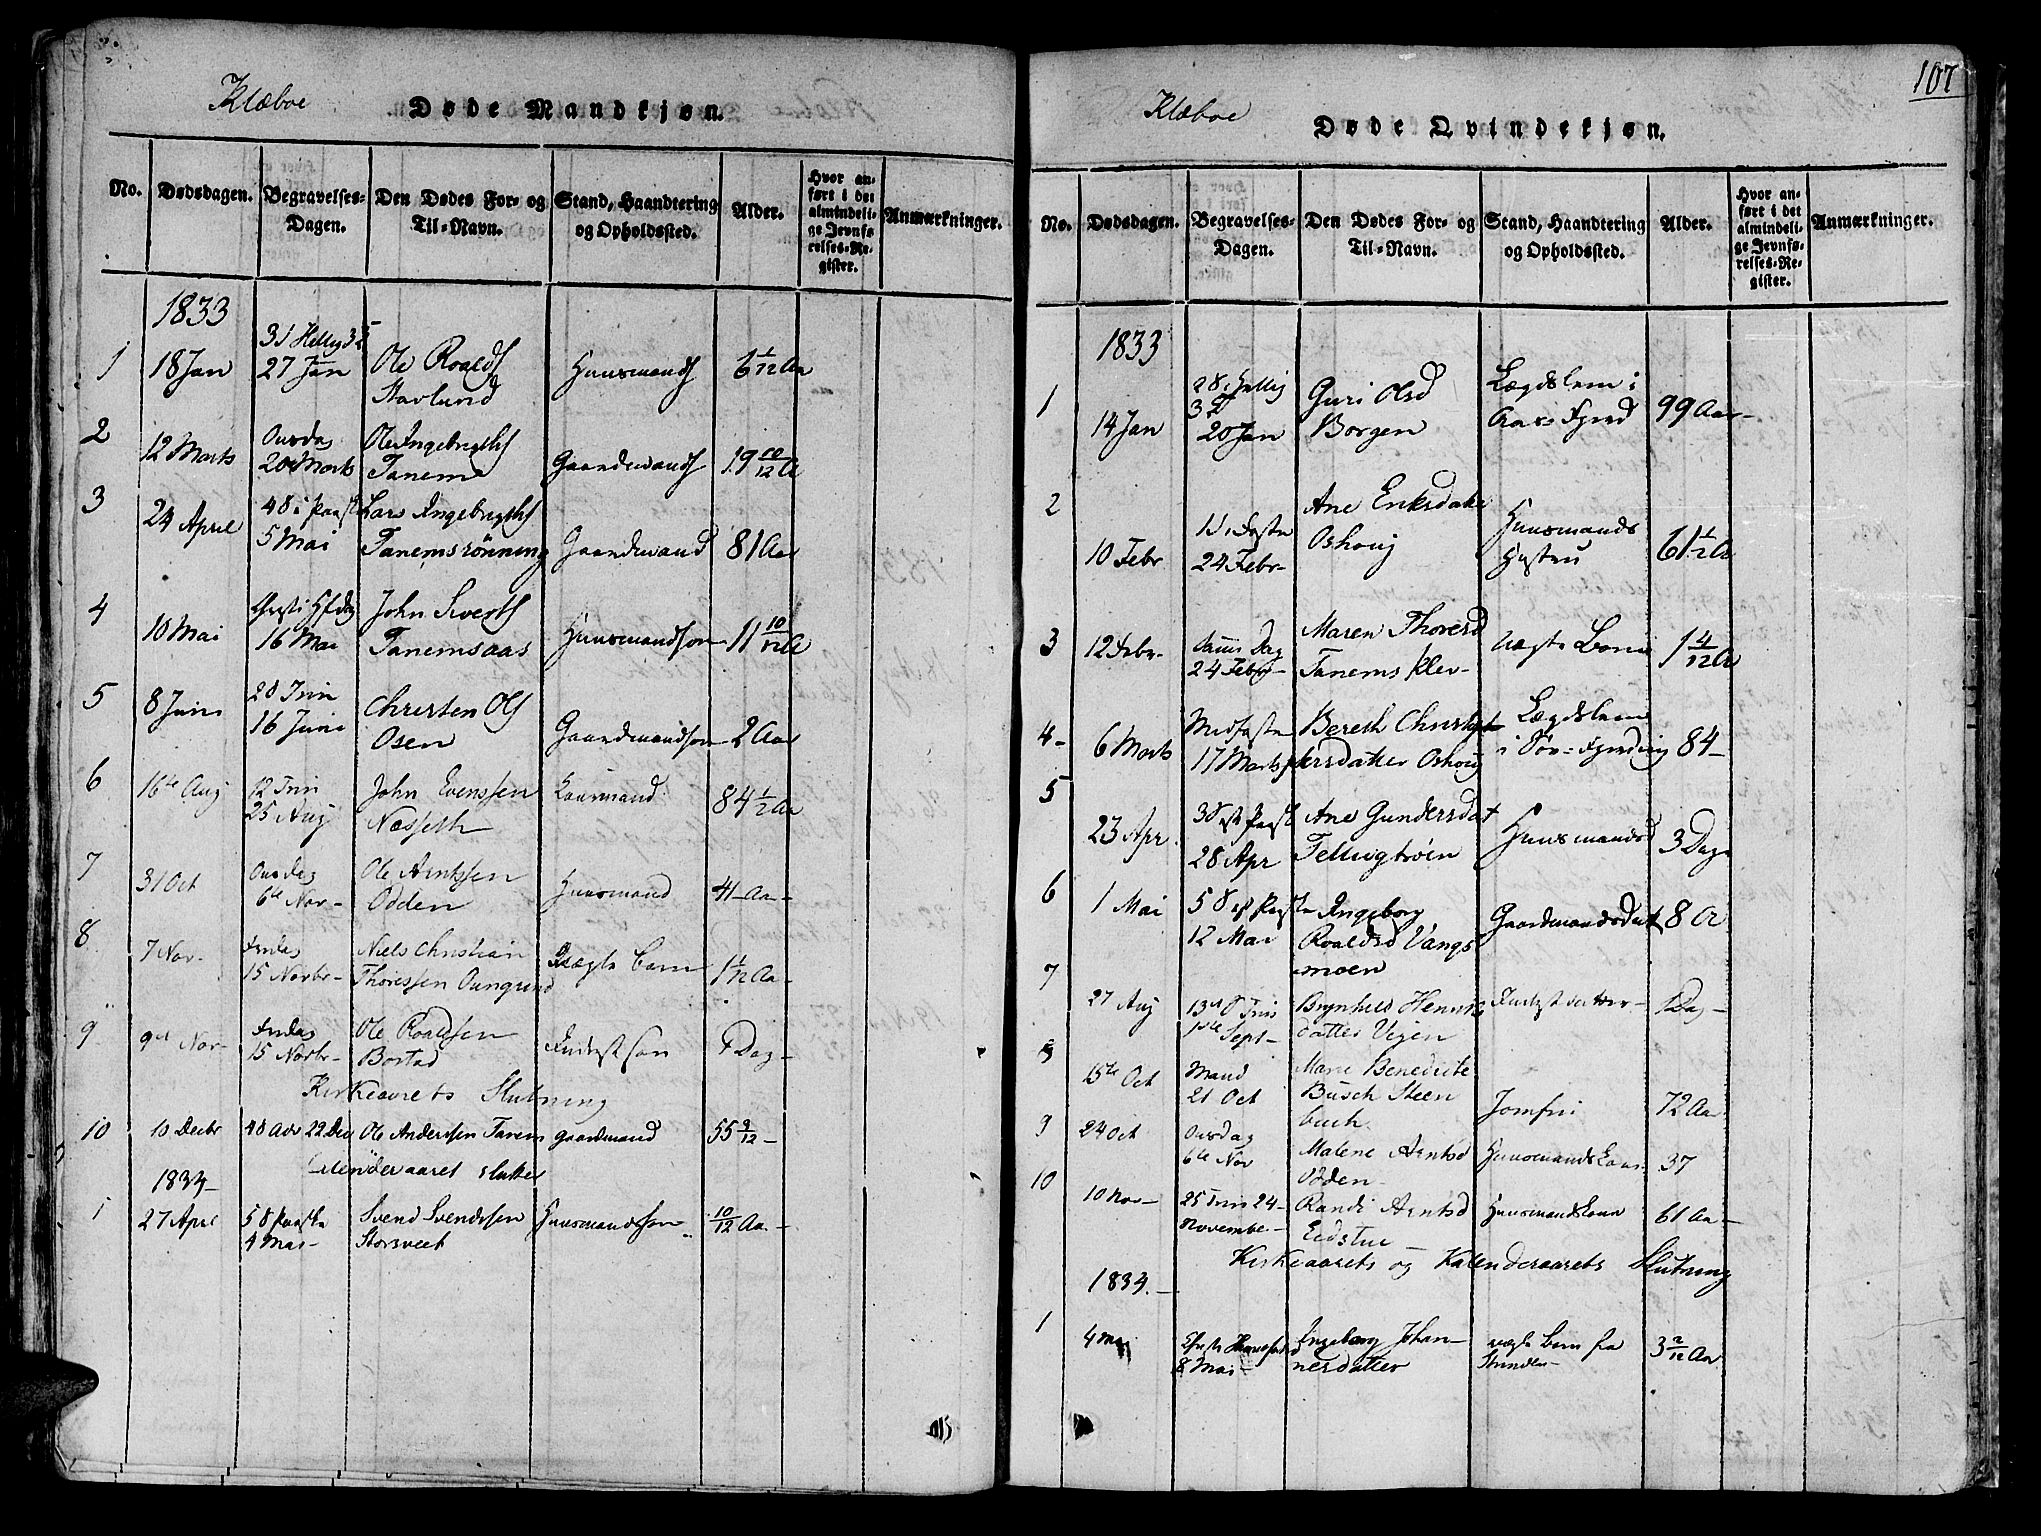 Klæboe
Døde Mandkjøn.
No.
Dødsdagen.
Begravelses-
Dagen.
Den Dødes For- og
Til-Navn.
Stand, Haandtering
og Opholdssted.
Alder.
Hvor an-
ført i det
almindeli-
ge Jevnfø-
relses-Re-
gister.
Anmærkninger.
1833
1
18 Jan
27 Jan
Ole Roalds
Stavlund
Huusmands
6 1/12 Aar
2
12 Marts
Onsdag
20 Marts
Ole Ingebrigts
Tanem
Gaardmands
19 10/12 A
3
24 April
5 Mai
Lars Ingebrigts
Tanemsrönning
Gaardmand
81 Aar
4
10 Mai
16 Mai
John Siverts
Tanemsaas
Huusmandsøn
11 10/12 A
5
8 Juni
2 S Trin
16 Juni
Christen Ols
Osen
Gaardmandsøn
2 Aar
6
16de Aug
12 Trin
25 Aug
John Evenssen
Næsseth
Kaarmand
84 1/2 Aar
7
31 Oct
Onsdag
6te Nov
Ole Arntssen
Odden
Huusmand
41 Aar
8
7 Nov
Fredag
15 Novbr
Niels Christian
Thoressen
uægte barn
1 1/12 Aa
9
9de Nov
Fredag
15 Novbr
Ole Roaldsen
Borstad
Inderst søn
1 Dag
Kirkeaarets Slutning
10
10 Decbr
4 S Adv 22 Dec
Ole Anderssen Tanem
gaardmand
55 9/12
Calenderaaret slutter
1834
1
27 April
5 S Paaske
4 Mai
Svend Svendssen
Storsveet
Huusmandssøn
10/12 Aa
107
Klæboe
Døde Qvindekjøn.
No.
Dødsdagen.
Begravelses-
Dagen.
Den Dødes For- og
Til-Navn.
Stand, Haandtering
og Opholdssted.
Alder.
Hvor an-
ført i det
almindeli-
ge Jevnfø-
relses-Re-
gister.
Anmærkninger.
1833
1
14 Jan
20 Jan
Guri Olsd
Borgen
Lægdslem i
99 Aar
2
10 Febr
1 S i Faste
24 Febr
Ane Eriksdatter
Oshoug
Huusmands
Hustru
61 1/2 A
3
12 Febr
samme Dag
24 Febr
Maren Thoresd
Tanems klev
uægte Barn
1 4/12 A
4
6 Marts
Midfaste
17 Marts
Bereth Christoph-
ersdatter Oshoug
Lægdslem
84
5
23 Apr
3 S e Paaske
28 Apr
Ane Gundersdat
Tellugtröen
Huusmandsd
3 Dage
6
1 Mai
5 S e Paaske
12 Mai
Ingeborg
Roaldsd Vangs
moen
Gaardmandsdat
8 A
7
27 Aug
13de S Trin
1ste Sept
Brynhild Henriks
datter Vigen
Inderst datter
1 Dag
8
15de Oct
Mand
21 Oct
Marie Benedicte
Busch Steen
buch
Jomfru
72 Aa
9
24 Oct
Onsdag
6te Nov
Malene Arntsd
Odden
Huusmandskone
37
10
10 Nov
25 Trin 24
November
Randi Arntsd
Eidstue
Huusmandskone
61 Aa
Kirkeaarets og Kalenderaarets Slutning
1834
1
4 Mai
8 Mai
Ingeborg Johan-
nesdatter
uægte barn fra
3 2/12 Aar